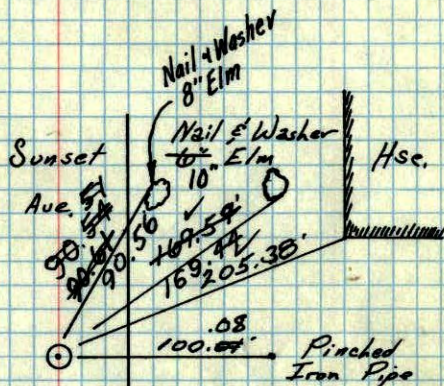 Nail & Washer
8" Elm
Nail & Washer
6" Elm
10"
Sunset
Ave.
Hse.
90.51
90.54
90.56
169.54'
169.44
205.38'
.08
100.01'
Pinched
Iron Pipe